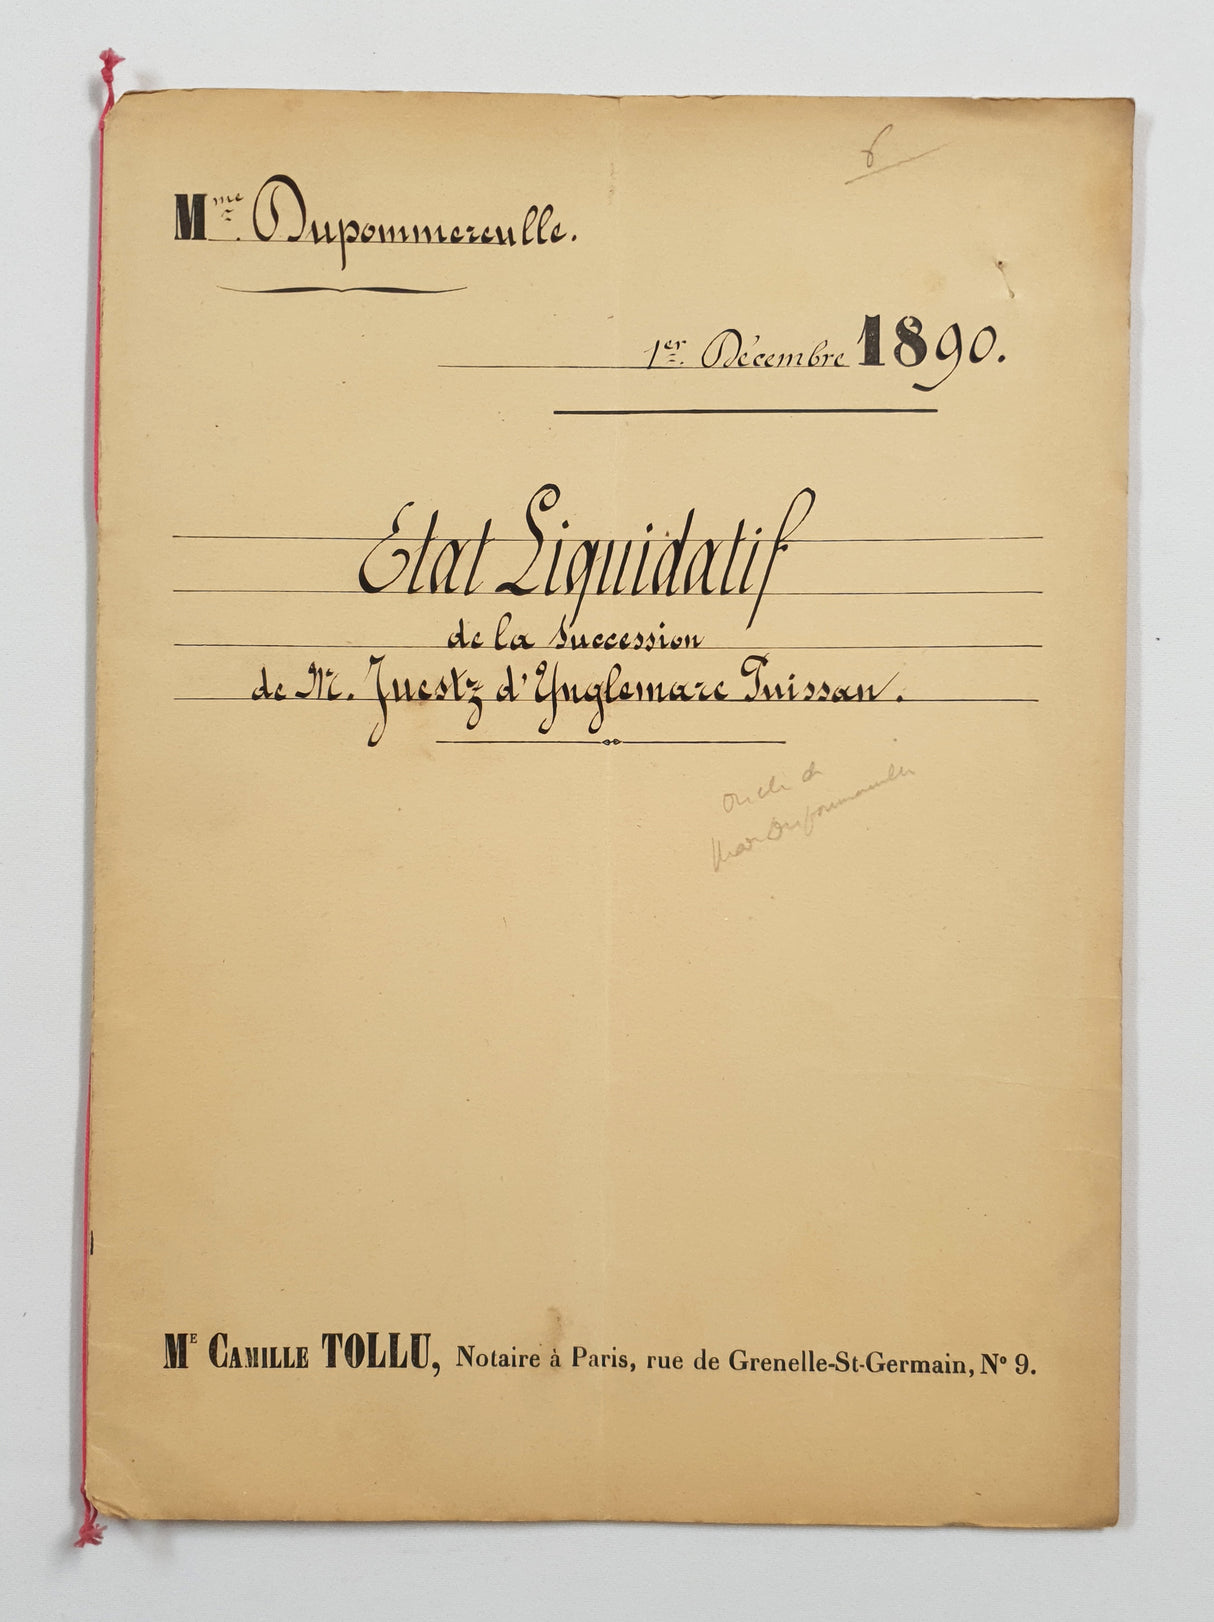 6
Mme Dupommereulle.
1er Décembre 1890.
Etat Liquidatif
de la succession
de Mr. Juestz d'Ynglemare Puissan.
Me Camille TOLLU, Notaire à Paris, rue de Grenelle-St-Germain, No 9.